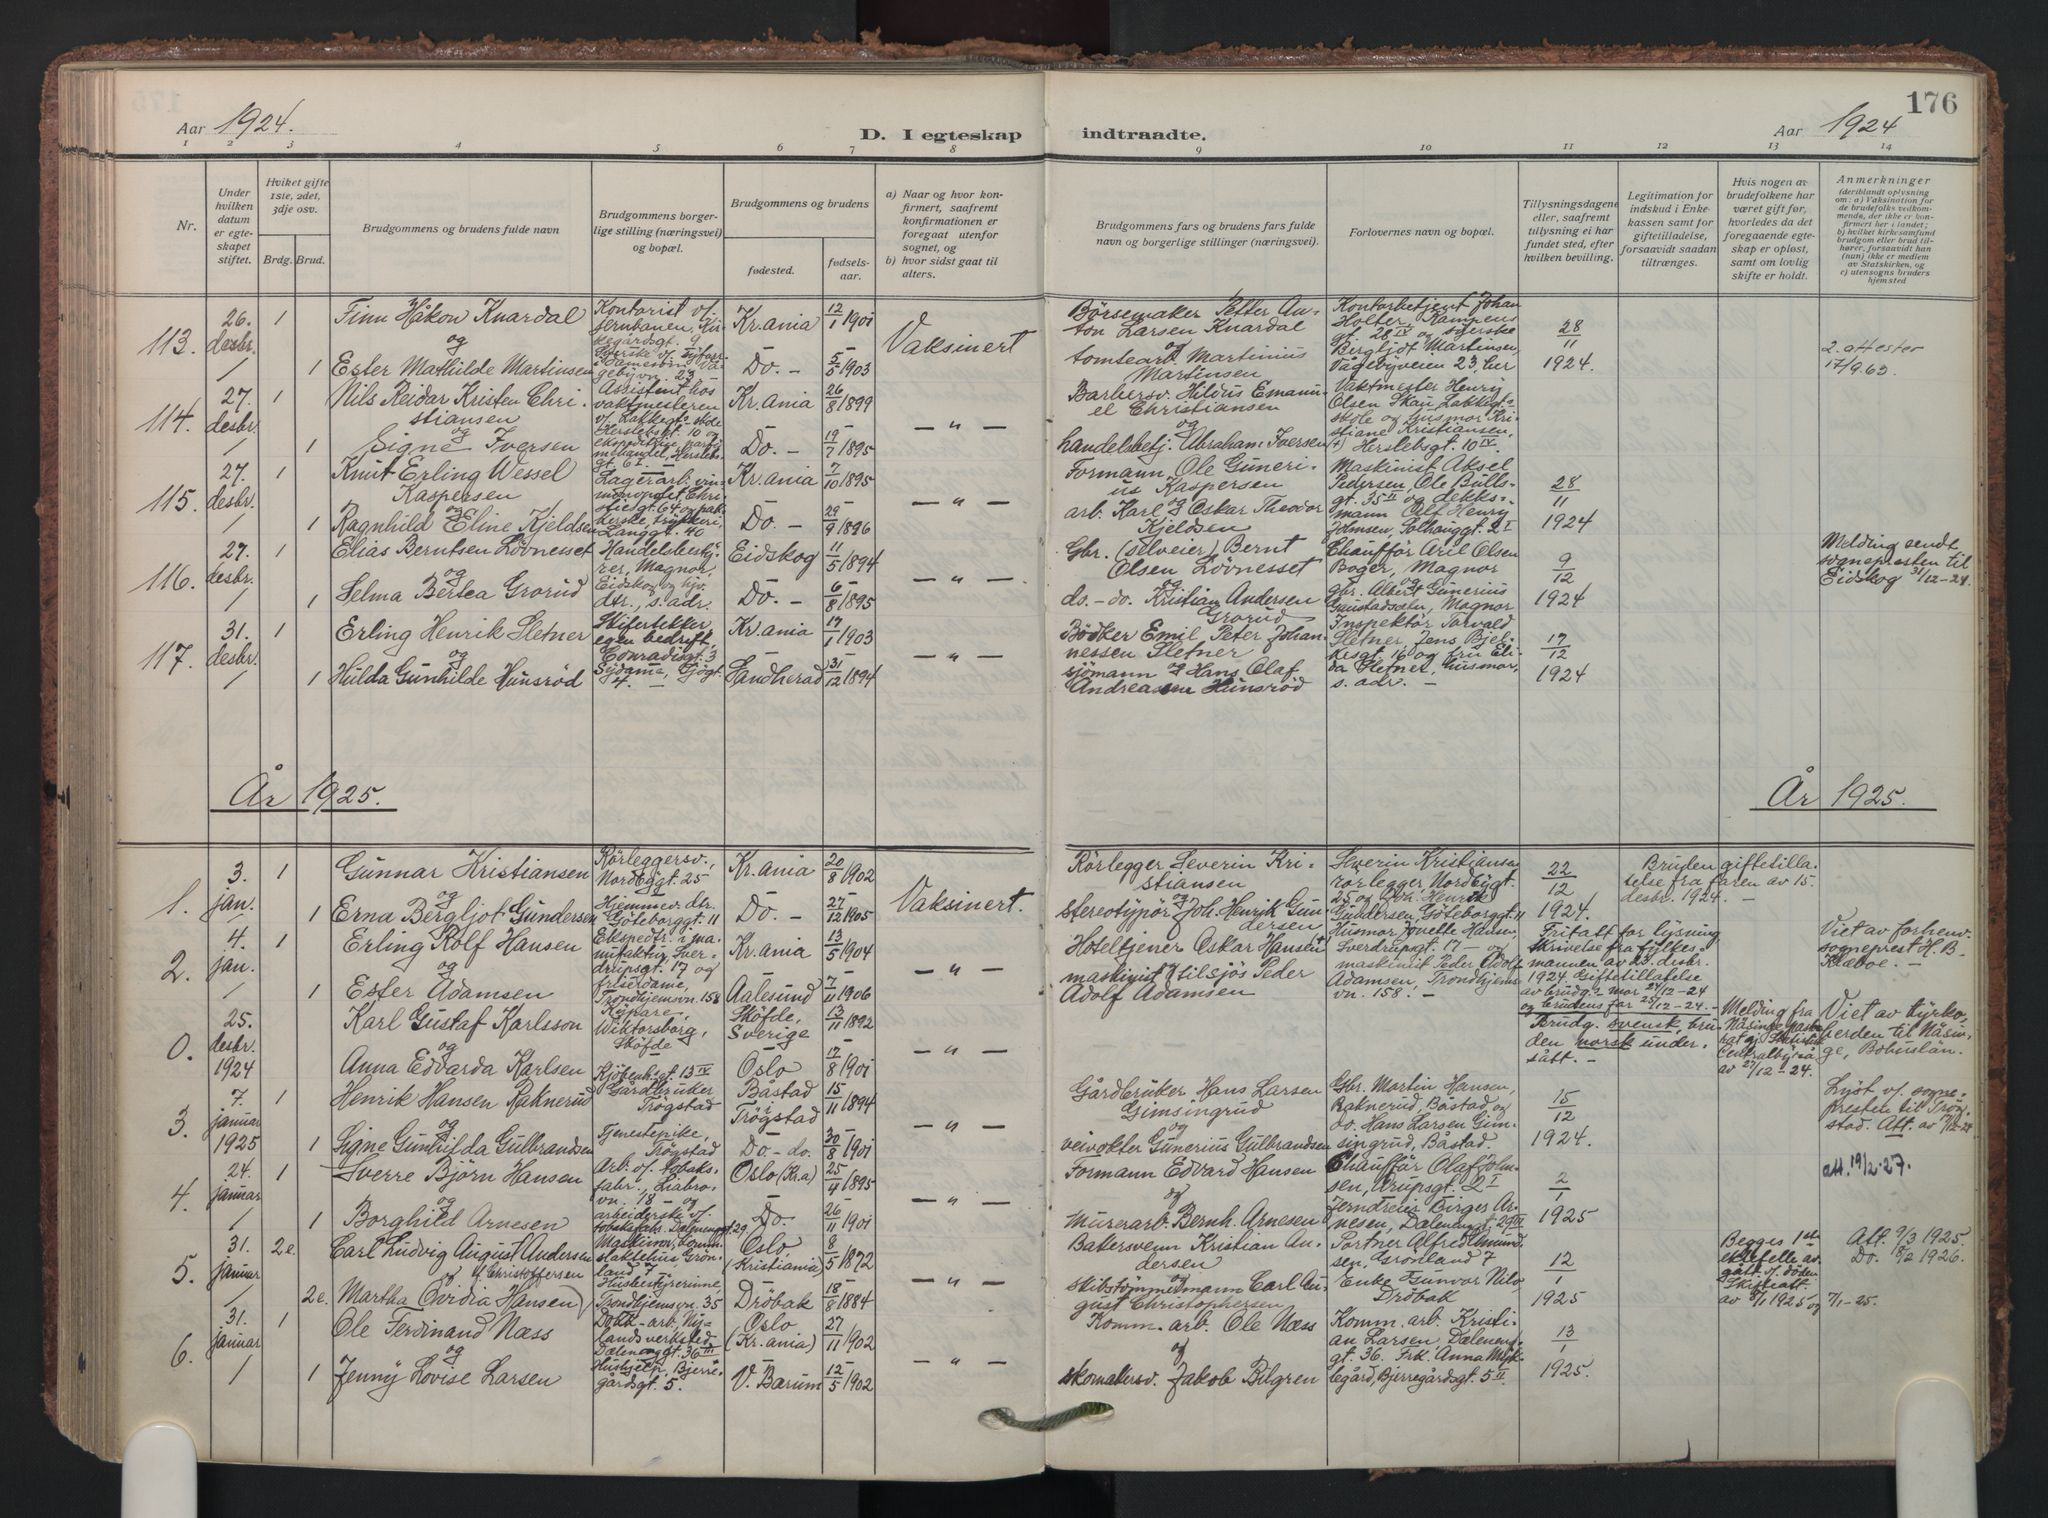 176
Aar 1924.
D. I egteskap
indtraadte.
Aar 1924
1 2 3 4 5 6 7 8 9 10 11 12 13 14
Nr.
Under hvilken datum er egteskapet stiftet.
Hviket gifte 1ste, 2det, 3dje osv.
Brdg. Brud.
Brudgommens og brudens fulde navn
Brudgommens borgerlige stilling (næringsvei) og bopæl.
Brudgommens og brudens
fødested.
fødselsaar.
a) Naar og hvor konfirmert, saafremt konfirmationen er foregaat utenfor sognet, og
b) hvor sidst gaat til alters.
Brudgommens fars og brudens fars fulde navn og borgerlige stillinger (næringsvei).
Forlovernes navn og bopæl.
Tillysningsdagene eller, saafremt tillysning ei har fundet sted, efter hvilken bevilling.
Legitimation for indskud i Enkekassen samt for giftetilladelse, forsaavidt saadan tiltrænges.
Hvis nogen av brudefolkene har været gift før, hvorledes da det foregaaende egteskap er opløst, samt om lovlig skifte er holdt.
Anmerkninger
(deriblandt oplysning om: a) Vaksination for de brudefolks vedkommende, der ikke er konfirmert her i landet; b) hvilket kirkesamfund brudgom eller brud tilhører, forsaavidt han (hun) ikke er medlem av Statskirken, og c) utensogns bruders hjemsted
113. 26. desbr. 1
Finn Håkon Knardal
Kontorist v/ jernbanen, Kirkegårdsgt. 9
Kr.ania 12/1 1901
Vaksinert
Børsemaker Petter Anton Larsen Knardal
Kontorbetjent Johan Holter, Kampens gt. 28 IV og syerske Bergljot Martinsen, Vågebyveien 23, her
28/11 1924.
2 attester 17/9 63.
og
1 Ester Mathilde Martinsen
Do. - 5/5 1903
og tomtearb. Martinius Martinsen
114. 27. desbr. 1
Nils Reidar Kristen Christiansen
Assistent hos vaktmesteren v/ Lakkegt. skole Herslebsgt. 10 og
Kr.ania 26/8 1899
- " -
Barbersv. Hildus Emanuel Christiansen
Vaktmester Henry Olsen Skau, Lakkegt. skole og husmor Kristiane Kristiansen, Herslebsgt. 10 IV.
og
1 Signe Iversen
Do. - 19/7 1895
og handelsbetj. Abraham Iversen (+)
115. 27. desbr. 1
Knut Erling Wessel Kaspersen
Lagerarb. vinmonopolet Christiesgt. 64 og pakkerske, trykkeri, Langgt. 40
Kr.ania 7/10 1895
- " -
Formann Ole Gunerius Kaspersen
Maskinist Aksel Pedersen, Ole Bulls gt. 35 II og dekksmann Olf Henry Johnsen, Solhauggt. 2 I
28/11 1924
og
1 Ragnhild Eline Kjeldsen
Do. - 29/9 1896
og arb. Karl Oskar Theodor Kjeldsen
116. 27. desbr. 1
Elias Berntsen Lövnesset
Handelsbestyrer, Magnor Eidskog og hjv. dtr., s. adr.
Eidskog 11/5 1894
- " -
Gbr. (selveier) Bernt Olsen Lövnesset
Chaufför Aril Olsen Boger, Magnor og gbr. Albert Gunerius Gaustadsæter, Magnor
9/12 1924
Melding sendt sognepresten til Eidskog 31/12-24.
og
1 Selma Bertea Grorud
Do. - 6/8 1895
og do. - do. Kristian Andersen Grorud
117. 31. desbr. 1
Erling Henrik Sletner
Skifertekker, egen bedrift, Conradisgt. 3
Kr.ania 17/1 1903
- " -
Bödker Emil Peter Johannessen Sletner
Inspektör Torvald Sletner, Jens Bjelkesgt. 16 og fru Elida Sletner, husmor, s. adr. -
17/12 1924
og
1 Hilda Gunhilde Hunsröd
Sydame, Sjögt. 4. -
Sandherad 31/12 1894
sjömann og Hans Olaf Andreassen Hunsröd
År 1925.
År 1925.
1. 3. jan. 1
Gunnar Kristiansen
Rörleggersv., Nordbygt. 25
Kr.ania 20/8 1902
Vaksinert.
Rörlegger Severin Kristiansen
Severin Kristiansen rörlegger, Nordbygt. 25 og Joh. Henrik Gundersen, Göteborggt. 11
22/12 1924.
Bruden giftetillatelse fra faren av 15. desbr. 1924. -
og
1 Erna Bergljot Gundersen
Hjemmev. dtr. Göteborggt. 11
Do. - 27/12 1905
og stereotypör Joh. Henrik Gundersen
2. 4. jan. 1
Erling Rolf Hansen
Ekspedtr. i manufaktur, Sverdrupsgt. 17 og friserdame, Trondhjemsvn. 158
Kr.ania 13/5 1904
- " -
Hoteltjener Oskar Hansen +
Husmor Jovette Hansen, Sverdrupsgt. 17 - og maskinist Peder Adolf Adamsen, Trondhjemsvn. 158. -
Fritatt for lysning skrivelse fra fylkesmannen av 23. desbr. 1924. Giftetillatelse av brudg.s mor 24/12-24 og brudens far 25/12-24. -
Viet av forhenv. sogneprest H. B. Klæboe. -
og
1 Ester Adamsen
Aalesund 7/11 1906
maskinist og tilsjös Peder Adolf Adamsen
0. 25. desbr. 1924
Karl Gustaf Karlsson
Köpare, Wiktorsborg, Sköfde
Sköfde, Sverige 13/11 1892
Brudg. svensk, bruden norsk undersått. -
Melding fra Näsinge Centralbyrå av 27/12-24.
Viet av Kyrkoherden til Näsinge, Bohuslän.
og
Anna Edvarda Karlsen
Kjöbenh.gt 13 IV
Oslo 17/8 1901
3. 7. januar 1925 1
Henrik Hansen Raknerud
Gårdbruker Trögstad
Båstad i Trögstad 15/11 1894
- " -
Gårdbruker Hans Larsen Gimsingrud
Gbr. Martin Hansen, Raknerud, Båstad og do. Hans Larsen Gimsingrud, Båstad
15/12 1924.
Lyst v/ sognepresten til Trögstad. Att. av 7/12-24
og
1 Signe Gunhilda Gulbrandsen
Tjenestepike, Trögstad
Do. - do. 30/8 1901
og veivokter Gunerius Gulbrandsen
4. 24. januar 1
Sverre Björn Hansen
Arb. v/ tobaksfabr., Liabrovn. 18 - og arbeiderske v/ tobaksfabr. Dælenenggt. 29
Oslo (Kr.a) 25/4 1895
- " -
Formann Edvard Hansen
Chaufför Olaf Johnsen, Arupsgt. 2 I Jerndreier Birger Arnesen, Dælenenggt. 29 III
2/1 1925
att. 19/2-27.
og
1 Borghild Arnesen
Do. 26/11 1901
og Murerarb. Bernh. Arnesen
5. 31. januar 2e.
Carl Ludvig August Andersen
Maskinist, komm. slaktehus, Grönland 7
Oslo, (Kristiania) 8/5 1872
- " -
Bakersvenn Kristian Andersen
Portner Alfred Amundsen, Grönland 7 Enke Gunvor Nilo, Dröbak
12/1 1925
Begges 1ste ektefelle avgått v. döden Skifteatt. av 8/1 1925 og 7/1-25.
Att. 9/3 1925 Do. 18/2 1926.
og
2e. Martha Ovidia Hansen f. Christoffersen
Husbestyrerinne, Trondhjemsvn. 35
Dröbak 18/8 1884
og skibstömmermann Carl August Christophersen
6. 31. januar 1
Ole Ferdinand Næss
Dokk-arb. Nylandsverksted, Dælenenggt. 36 III
Oslo (Kr.ania) 27/11 1902
- " -
Komm. arb. Ole Næss
Komm. arb. Kristian Larsen, Dælenenggt. 36. Frk. Anna Myklegård, Bjerregårdsgt. 5 II
13/1 1925.
og
1 Jenny Lovise Larsen
Hushjelp, Bjerregårdsgt. 5.
V. Bærum 12/5 1902
og skomakersv. Jakob Bilgren